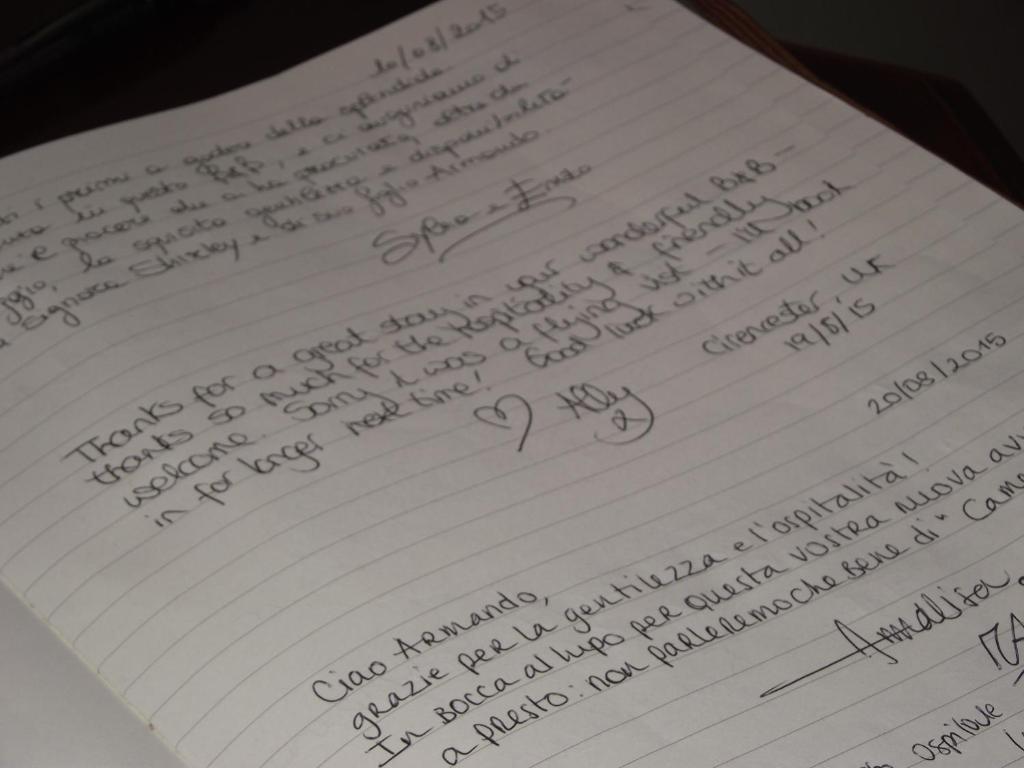 10/08/2015
i primi a godere della splendida
di questo B&B, e ci auguriamo di
piacere che ci ha procurato, oltre che
la squisita gentilezza e disponibilità
Signora Shirley e di suo figlio Armando.
Thanks for a great stay in your wonderful B&B -
thanks so much for the hospitality & friendly
welcome. Sorry I was a flying visit - I'll head
in for longer next time! Good luck with it all!
Ally
Cirencester, UK
19/8/15
20/08/2015
Ciao Armando,
grazie per la gentilezza e l'ospitalità!
In bocca al lupo per questa vostra nuova
a presto: non parleremo che bene di "
Annalisa
ospitale